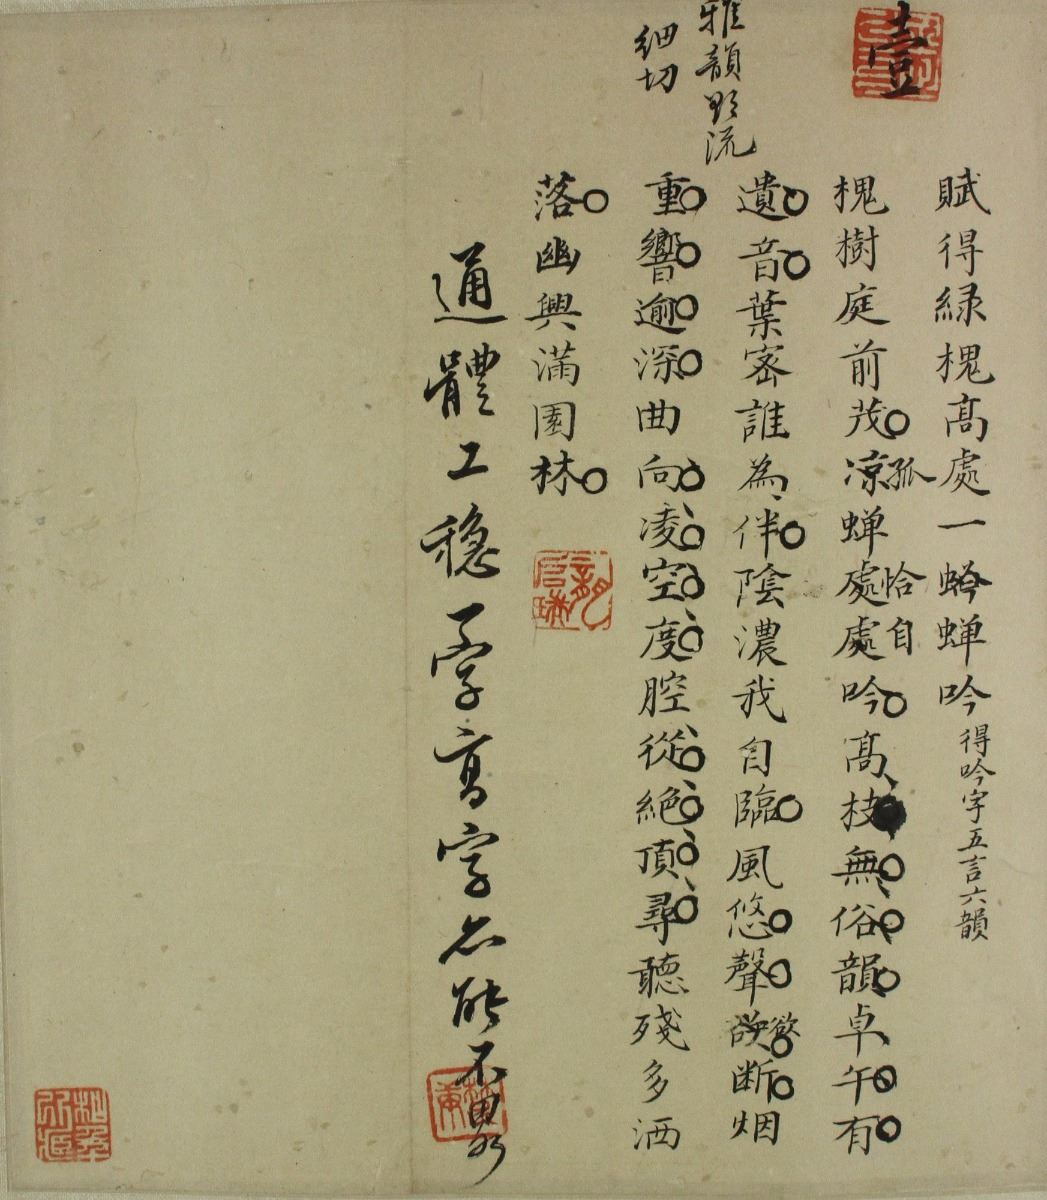 壹
賦得緑槐髙處一蝉吟得吟字五言六韻
槐樹庭前茂凉蝉處處吟髙枝無俗韻卓午有
孤
恰自
遺音葉宻誰為伴陰濃我自臨風悠聲欲断烟
欲
雅韻欲流
重響逾深曲向凌空度腔從絶頂尋聽殘多洒
細切
落幽興滿園林
通體工穩字高字亦能不畧